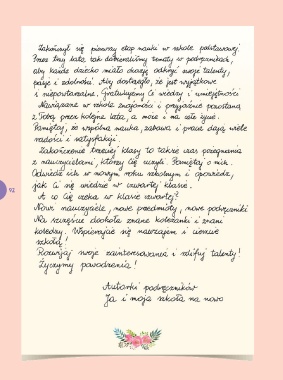 Zakończył się pierwszy etap nauki w szkole podstawowej.
Przez trzy lata tak dobieraliśmy tematy w podręcznikach,
aby każde dziecko miało okazję odkryć swoje talenty,
pasje i zdolności. Aby dostrzegło, że jest wyjątkowe
i niepowtarzalne. Gratulujemy Ci wiedzy i umiejętności.
Nawiązane w szkole znajomości i przyjaźnie pozostaną
z Tobą przez kolejne lata, a może i na całe życie.
Pamiętaj, że wspólna nauka, zabawa i praca dają wiele
radości i satysfakcji.
Zakończenie trzeciej klasy to także czas pożegnania
z nauczycielami, którzy Cię uczyli. Pamiętaj o nich.
Odwiedź ich w nowym roku szkolnym i opowiedz,
jak Ci się wiedzie w czwartej klasie.
A co Cię czeka w klasie czwartej?
Nowi nauczyciele, nowe przedmioty, nowe podręczniki.
Na szczęście dookoła znane koleżanki i znani
koledzy. Wspierajcie się nawzajem i cieszcie
szkołą!
Rozwijaj swoje zainteresowania i szlifuj talenty!
Życzymy powodzenia!
Autorki podręczników
Ja i moja szkoła na nowo
92